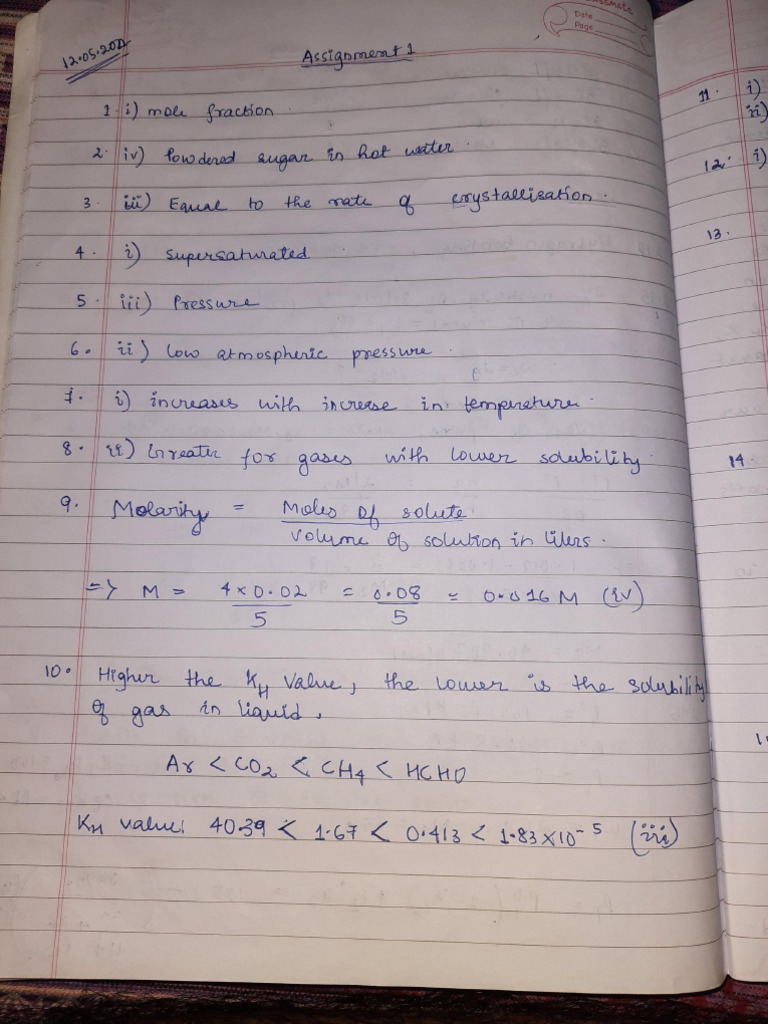 classmate
Date
Page
12.05.2021
Assignment 1
1. i) mole fraction.
2. iv) Powdered sugar in hot water.
3. iii) Equal to the rate of crystallisation.
4. i) supersaturated
5. iii) Pressure
6. ii) low atmospheric pressure.
7. i) increases with increase in temperature.
8. ii) Greater for gases with lower solubility.
9. Molarity = Moles of solute
Volume of solution in liters.
=> M = 4 x 0.02 = 0.08 = 0.016 M (iv)
5 5
10. Higher the KH value, the lower is the solubility
of gas in liquid.
Ar < CO2 < CH4 < HCHO
KH value: 40.39 < 1.67 < 0.413 < 1.83 x 10-5 (iii)
11. i)
ii)
12. i)
13.
14